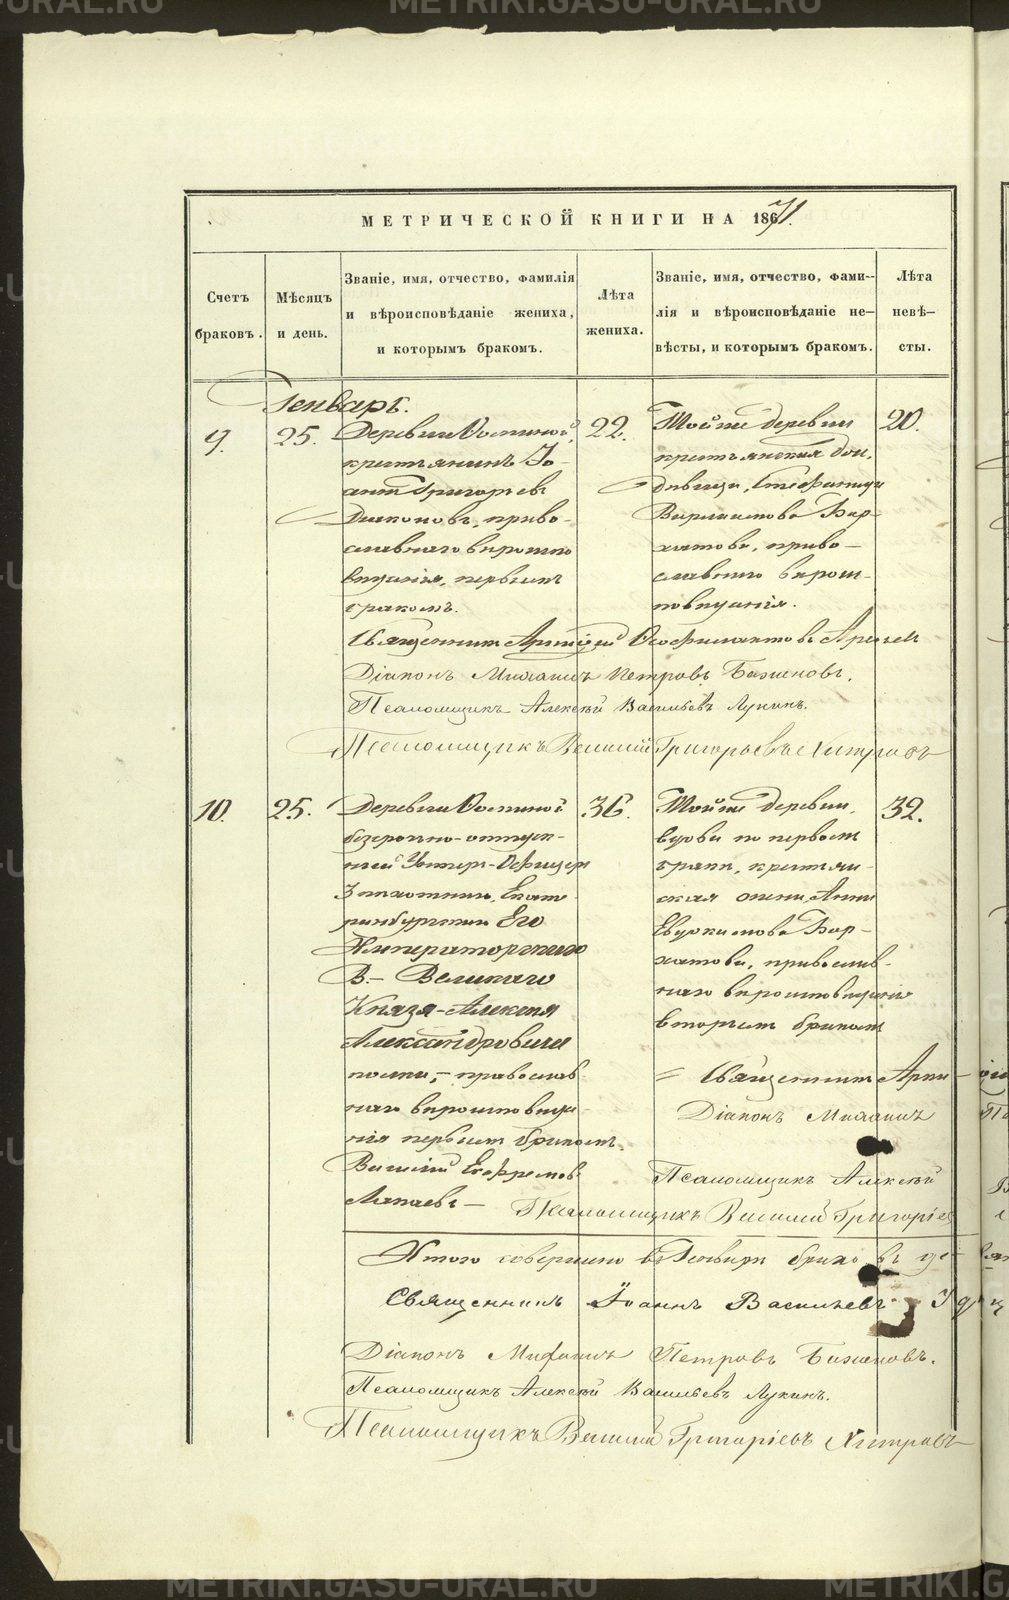 METRIKI.GASU-URAL.RU
МЕТРИЧЕСКОЙ КНИГИ НА 1871.
Счетъ браковъ.
Мѣсяцъ и день.
Званіе, имя, отчество, фамилія
и вѣроисповѣданіе жениха,
и которымъ бракомъ.
Лѣта жениха.
Званіе, имя, отчество, фами-
лія и вѣроисповѣданіе не-
вѣсты, и которымъ бракомъ.
Лѣта невѣ-
сты.
Генварь.
9.
25.
Деревни
крестьянинъ Іо-
аннъ Григорьевъ
Діаконовъ, право-
славнаго вѣроиспо
вѣданія, первымъ
бракомъ.
22.
Тойже деревни
крестьянская дочь,
дѣвица, Стефанида
Варламова Бар-
хатова, право-
славнаго вѣроис-
повѣданія.
20.
Священникъ
Діаконъ Михаилъ Петровъ Баженовъ.
Псаломщикъ Алексѣй Васильевъ Лукинъ.
Псаломщикъ Василій Григорьевъ Хитровъ
10.
25.
Деревни
безсрочно-отпуск-
ной Унтеръ-Офицеръ
Екате
ринбургскаго Его
Императорскаго
В.- Великаго
Князя Алексѣя
Александровича
полка, - православ-
наго вѣроисповѣда-
нія первымъ бракомъ.
Василій Ефремовъ
36.
Тойже деревни,
вдова по первомъ
бракѣ, крестьян-
ская жена, Анна
Евдокимова Бар-
хатова, православ-
наго вѣроисповѣданія
вторымъ бракомъ
32.
Священникъ
Діаконъ Михаилъ
Псаломщикъ Алексѣй
Псаломщикъ Василій Григоріев
Итого совершено въ Генварѣ
Священникъ Іоаннъ Васильевъ
Діаконъ Михаилъ Петровъ Баженовъ.
Псаломщикъ Алексѣй Васильевъ Лукинъ.
Псаломщикъ Василій Григоріевъ Хитровъ
METRIKI.GASU-URAL.RU